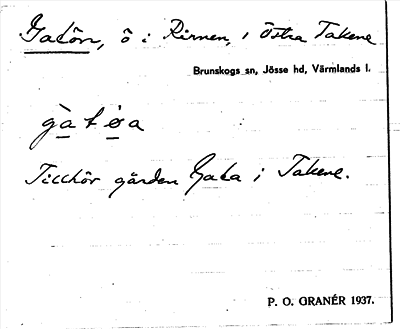 Gatön, ö i Rinnen, i Östra Takene
Brunskogs sn, Jösse hd, Värmlands l.
g̀a t ø̀ a
Tillhör gården Gata i Takene.
P. O. GRANÉR 1937.